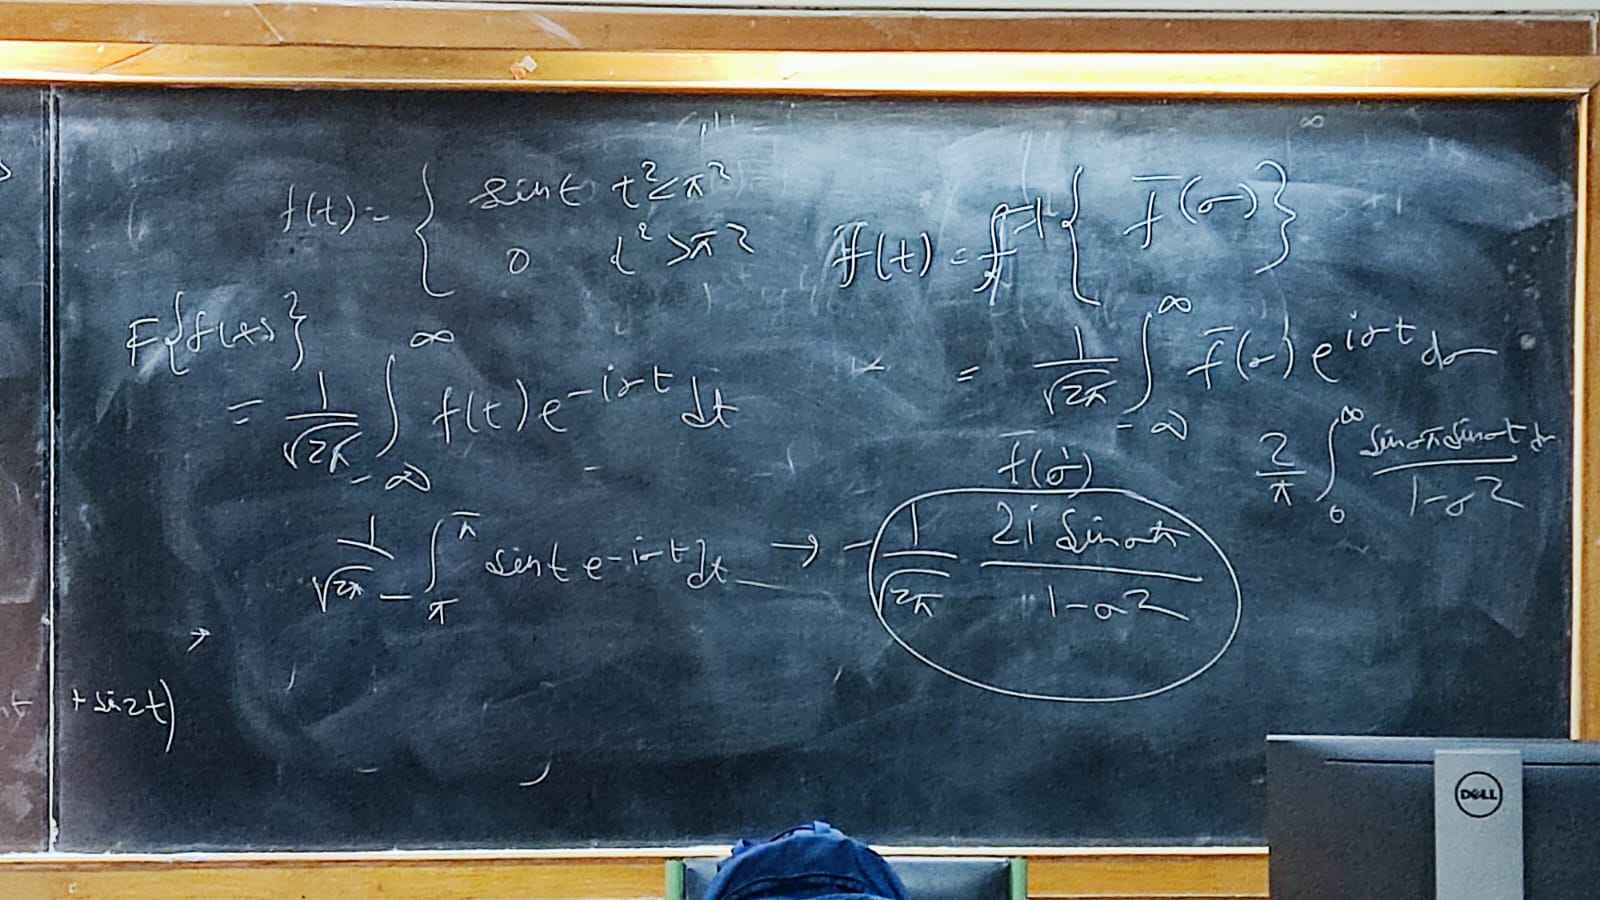 f(t) = { sint t² ≤ π²
0 t² > π²
F{f(t)}
= 1/√2π ∫_{-∞}^{∞} f(t) e^{-iσt} dt
1/√2π ∫_{-π}^{π} sint e^{-iσt} dt → - 1/√2π 2i sinσπ / 1-σ²
+ sin2t)
f(t) = F⁻¹ { f̄(σ) }
= 1/√2π ∫_{-∞}^{∞} f̄(σ) e^{iσt} dσ
f̄(σ)
2/π ∫_{0}^{∞} sinσπ sinσt dσ / 1-σ²
DELL